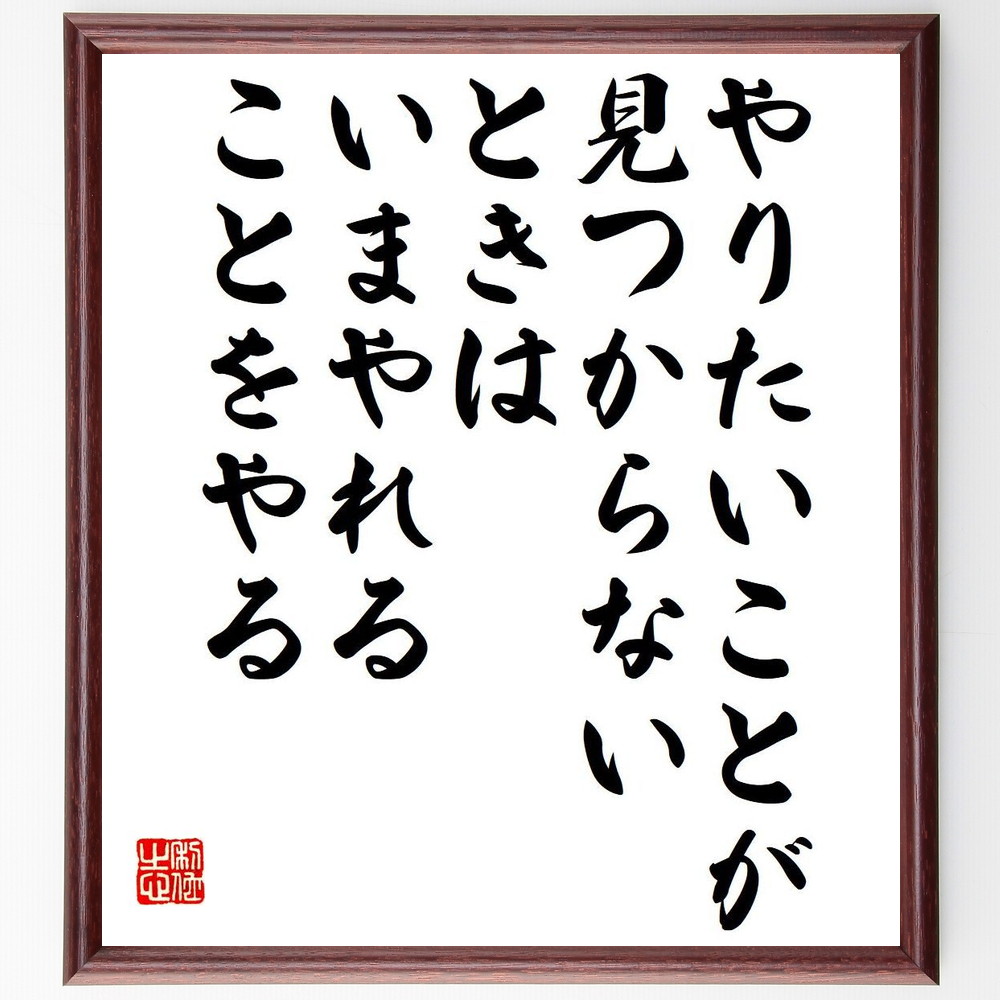 やりたいことが
見つからない
ときは
いまやれる
ことをやる